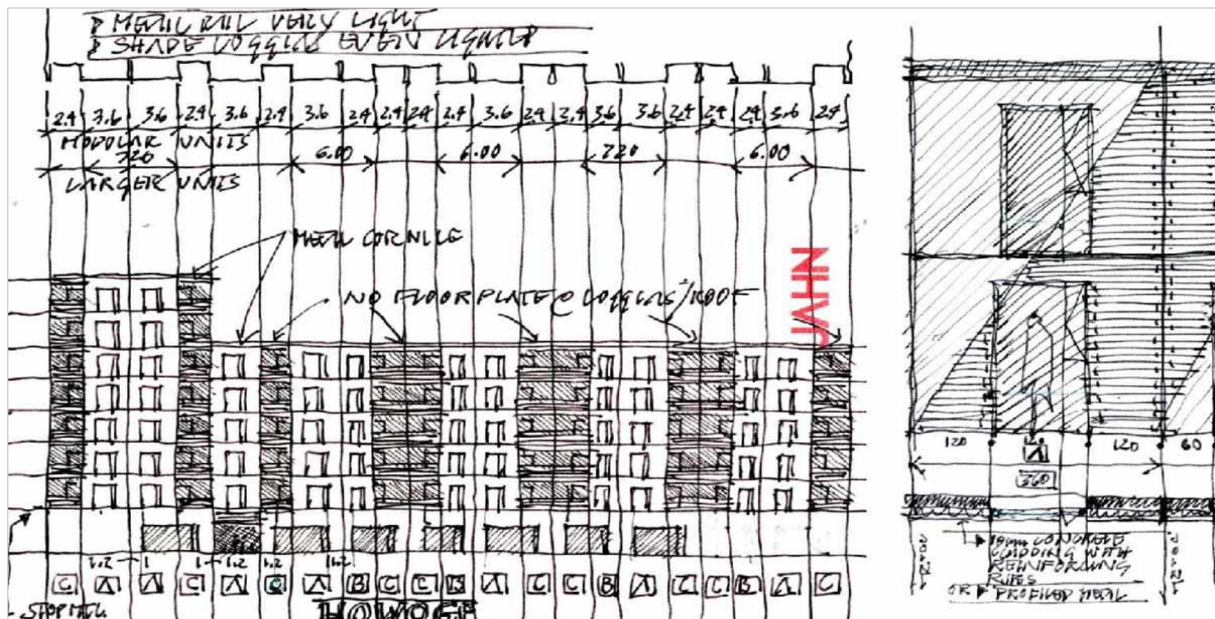 ▶ METAL RAIL VERY LIGHT
▶ SHADE LOGGIAS EVEN LIGHTER
2.4 3.6 3.6 2.4 3.6 2.4 3.6 2.4 2.4 2.4 2.4 3.6 2.4 2.4 3.6 3.6 2.4 2.4 2.4 3.6 2.4
MODULAR UNITS
720 6.00 6.00 720 6.00
LARGER UNITS
METAL CORNICE
NO FLOOR PLATE @ LOGGIAS/ROOF
1.2 1.2 1.2 1.2
C A A C A C A B C C B A C C B A C C B A C
HOWOGE
120 120 120 60
A
360
CONCRETE
CLADDING WITH
REINFORCING
RIPES
OR ▶ PROFILED METAL